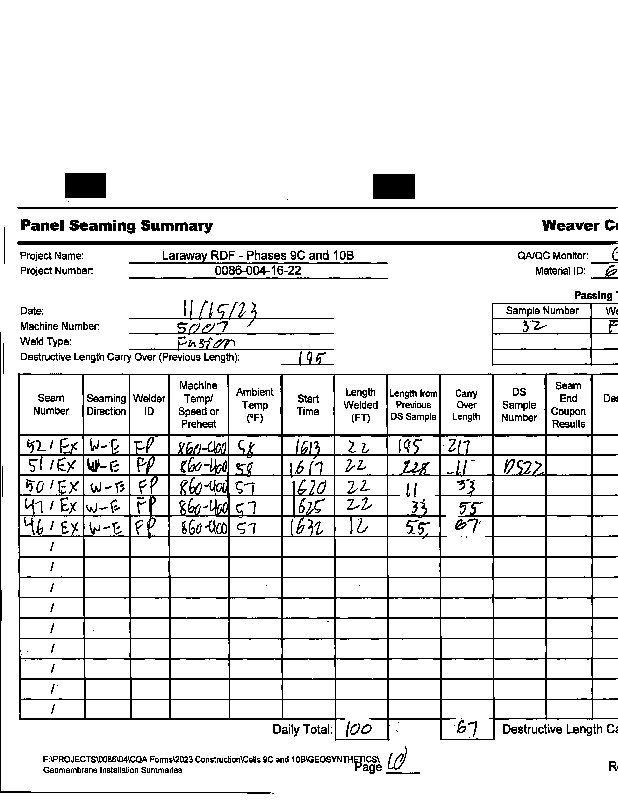 Panel Seaming Summary Weaver C
Project Name: Laraway RDF - Phases 9C and 10B QA/QC Monitor:
Project Number: 0086-004-16-22 Material ID:
Passing
Date: 11/15/23 Sample Number
Machine Number: 5007 32
Weld Type: Fusion
Destructive Length Carry Over (Previous Length): 195
Seam Number Seaming Direction Welder ID Machine Temp/ Speed or Preheat Ambient Temp (°F) Start Time Length Welded (FT) Length from Previous DS Sample Carry Over Length DS Sample Number Seam End Coupon Results
52 / Ex W-E FP 860-400 58 1613 22 195 217
51 / Ex W-E FP 860-400 58 1617 22 228 11 DS22
50 / Ex W-E FP 860-400 57 1620 22 11 33
47 / Ex W-E FP 860-400 57 1625 22 33 55
46 / Ex W-E FP 860-400 57 1632 12 55 67
/
/
/
/
/
/
/
/
/
Daily Total: 100 67 Destructive Length Ca
F:\PROJECTS\0086\04\CQA Forms\2023 Construction\Cells 9C and 10B\GEOSYNTHETICS\
Geomembrane Installation Summaries Page 10 R